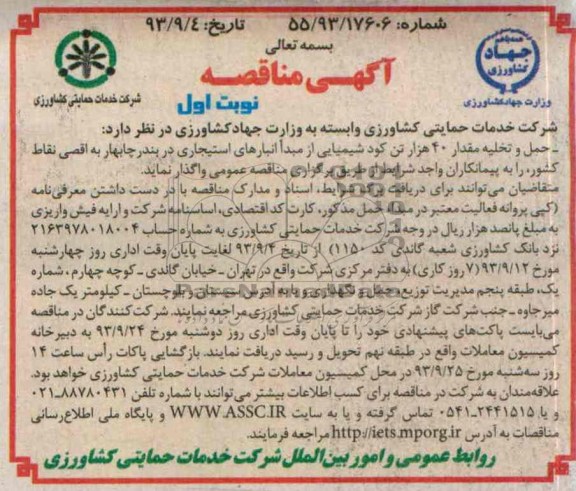 شماره: ۵۵/۹۳/۱۷۶۰۶
تاریخ: ۹۳/۹/٤
بسمه تعالی
آگهی مناقصه
نوبت اول
جهاد کشاورزی
وزارت جهادکشاورزی
شرکت خدمات حمایتی کشاورزی
شرکت خدمات حمایتی کشاورزی وابسته به وزارت جهادکشاورزی در نظر دارد:
ـ حمل و تخلیه مقدار ۴۰ هزار تن کود شیمیایی از مبدأ انبارهای استیجاری در بندرچابهار به اقصی نقاط
کشور، را به پیمانکاران واجد شرایط از طریق برگزاری مناقصه عمومی واگذار نماید.
متقاضیان می‌توانند برای دریافت شرایط، اسناد و مدارک مناقصه با در دست داشتن معرفی‌نامه
(کپی پروانه فعالیت معتبر در حمل مذکور، کارت کد اقتصادی، اساسنامه شرکت و ارایه فیش واریزی
به مبلغ پانصد هزار ریال در وجه شرکت خدمات حمایتی کشاورزی به شماره حساب ۲۱۶۳۹۷۸۰۱۸۰۰۴
نزد بانک کشاورزی شعبه گاندی کد ۱۱۵۰) از تاریخ ۹۳/۹/۴ لغایت پایان وقت اداری روز چهارشنبه
مورخ ۹۳/۹/۱۲ (۷ روز کاری) به دفتر مرکزی شرکت واقع در تهران ـ خیابان گاندی ـ کوچه چهارم ـ شماره
یک، طبقه پنجم مدیریت توزیع، حمل و نگهداری و یا به آدرس سیستان و بلوچستان ـ کیلومتر یک جاده
میرجاوه ـ جنب شرکت گاز شرکت خدمات حمایتی کشاورزی مراجعه نمایند. شرکت‌کنندگان در مناقصه
می‌بایست پاکت‌های پیشنهادی خود را تا پایان وقت اداری روز دوشنبه مورخ ۹۳/۹/۲۴ به دبیرخانه
کمیسیون معاملات واقع در طبقه نهم تحویل و رسید دریافت نمایند. بازگشایی پاکات رأس ساعت ۱۴
روز سه‌شنبه مورخ ۹۳/۹/۲۵ در محل کمیسیون معاملات شرکت خدمات حمایتی کشاورزی خواهد بود.
علاقه‌مندان به شرکت در مناقصه برای کسب اطلاعات بیشتر می‌توانند با شماره تلفن ۸۸۷۸۰۴۳۱-۰۲۱
و یا ۲۴۴۱۵۱۵-۰۵۴۱ تماس گرفته و یا به سایت WWW.ASSC.IR و پایگاه ملی اطلاع‌رسانی
مناقصات به آدرس http://iets.mporg.ir مراجعه فرمایند.
روابط عمومی و امور بین‌الملل شرکت خدمات حمایتی کشاورزی